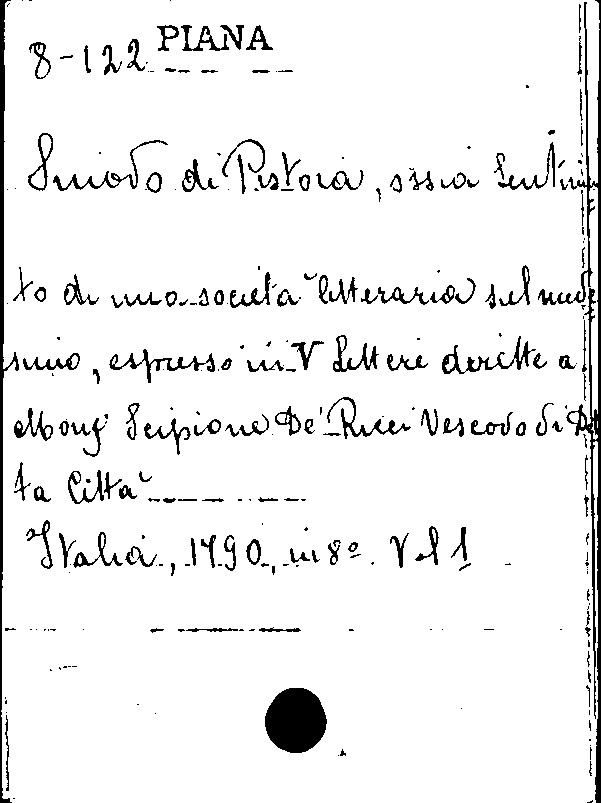 8-122 PIANA
Sinodo di Pistoia, ossia Sentimen
to di una società litteraria sul mede
simo, espresso in V Lettere dirette a
Mons.r Scipione De' Ricci Vescovo di Det
ta Città
Italia, 1790, in 8º. Vol 1